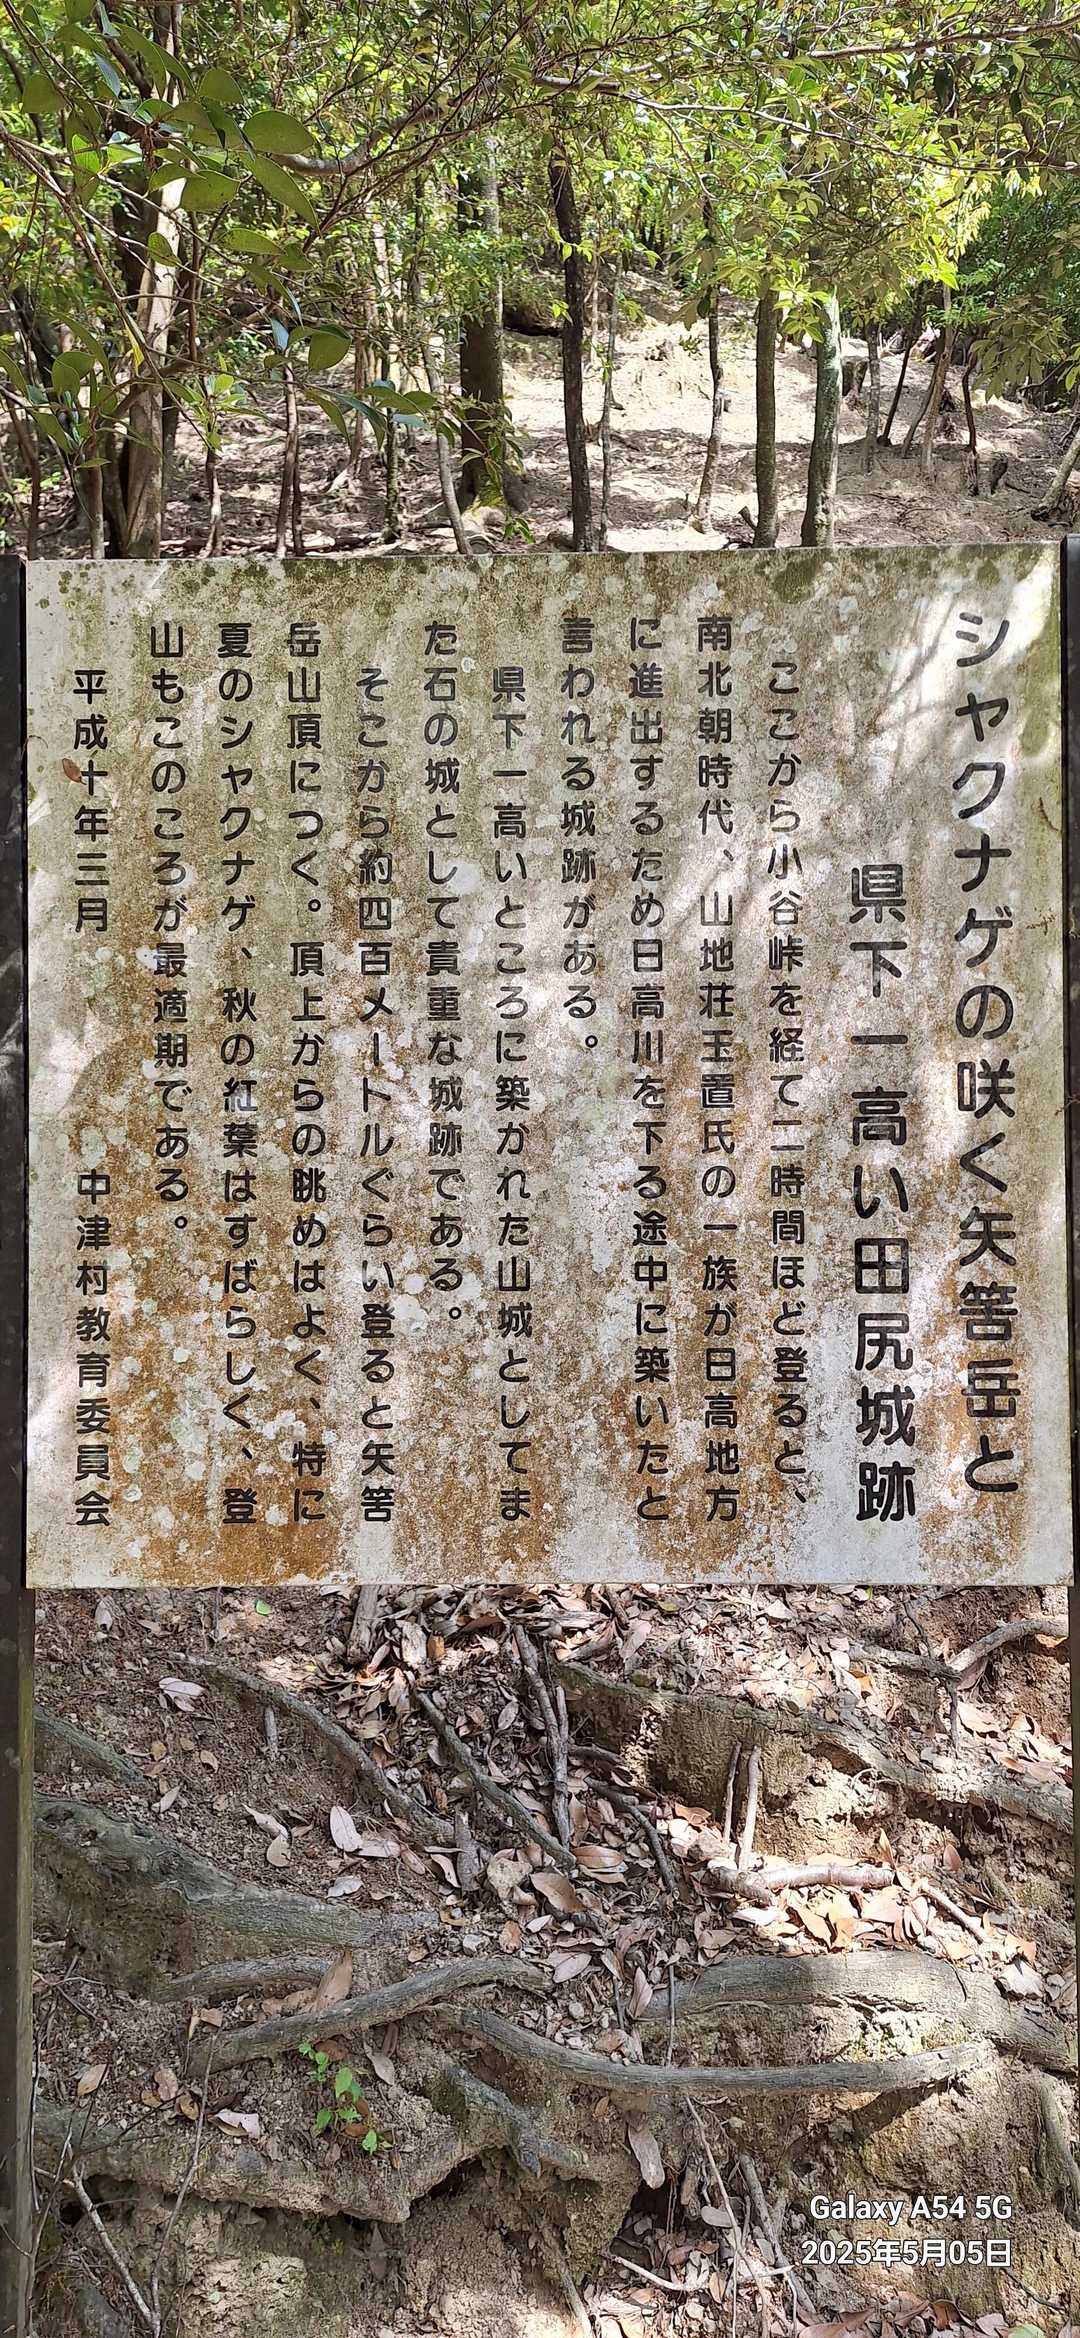 シャクナゲの咲く矢筈岳と
県下一高い田尻城跡
ここから小谷峠を経て二時間ほど登ると、
南北朝時代、山地荘玉置氏の一族が日高地方
に進出するため日高川を下る途中に築いたと
言われる城跡がある。
県下一高いところに築かれた山城としてま
た石の城として貴重な城跡である。
そこから約四百メートルぐらい登ると矢筈
岳山頂につく。頂上からの眺めはよく、特に
夏のシャクナゲ、秋の紅葉はすばらしく、登
山もこのころが最適期である。
平成十年三月 中津村教育委員会
Galaxy A54 5G
2025年5月05日